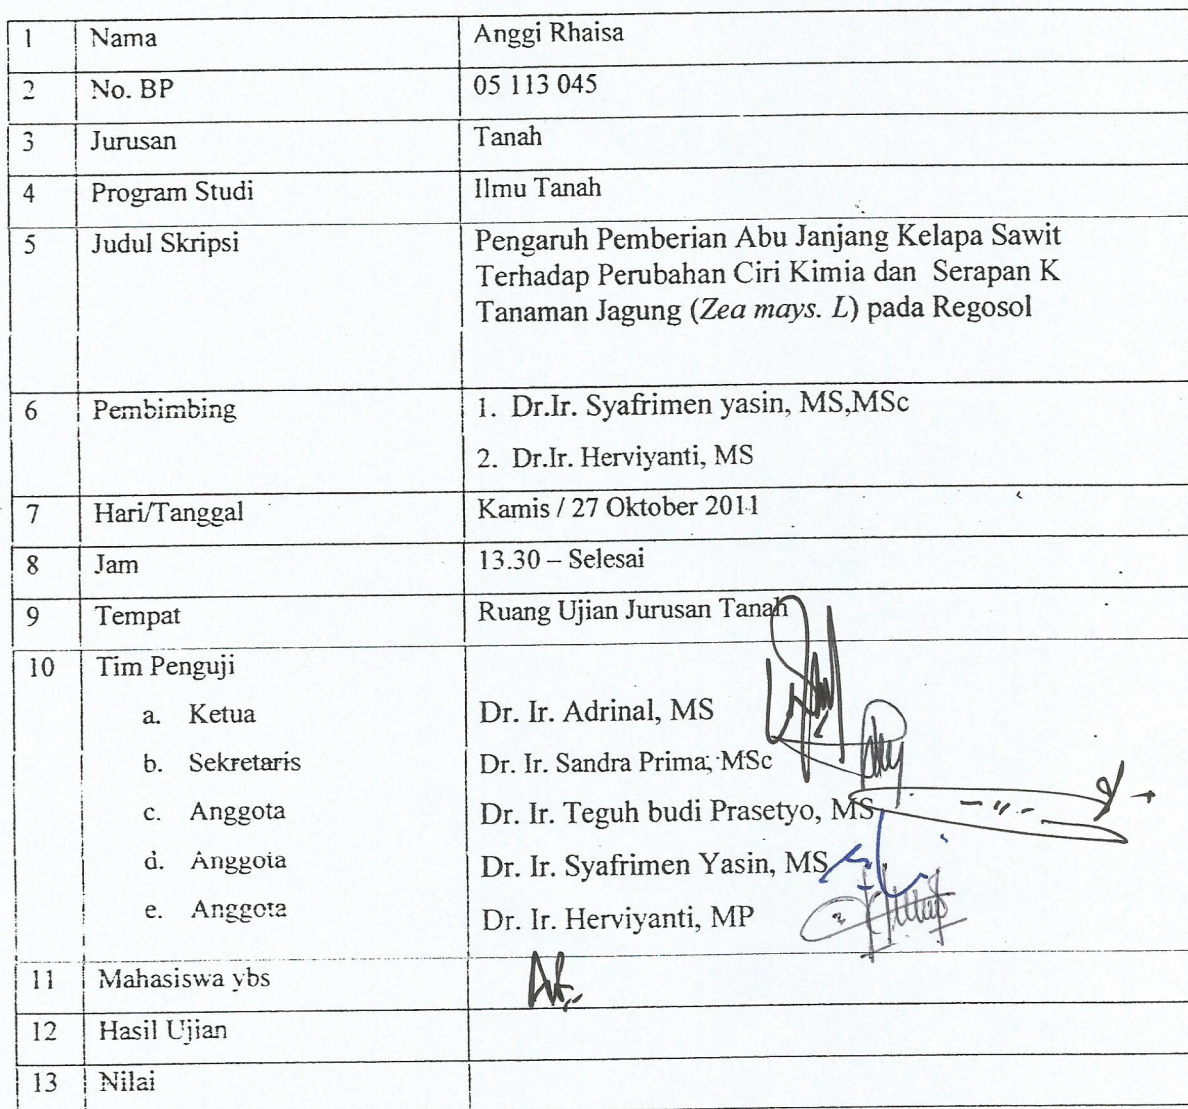 1 Nama Anggi Rhaisa
2 No. BP 05 113 045
3 Jurusan Tanah
4 Program Studi Ilmu Tanah
5 Judul Skripsi Pengaruh Pemberian Abu Janjang Kelapa Sawit
Terhadap Perubahan Ciri Kimia dan Serapan K
Tanaman Jagung (Zea mays. L) pada Regosol
6 Pembimbing 1. Dr.Ir. Syafrimen yasin, MS,MSc
2. Dr.Ir. Herviyanti, MS
7 Hari/Tanggal Kamis / 27 Oktober 2011
8 Jam 13.30 – Selesai
9 Tempat Ruang Ujian Jurusan Tanah
10 Tim Penguji
a. Ketua Dr. Ir. Adrinal, MS
b. Sekretaris Dr. Ir. Sandra Prima, MSc
c. Anggota Dr. Ir. Teguh budi Prasetyo, MS
d. Anggota Dr. Ir. Syafrimen Yasin, MS
e. Anggota Dr. Ir. Herviyanti, MP
11 Mahasiswa ybs
12 Hasil Ujian
13 Nilai